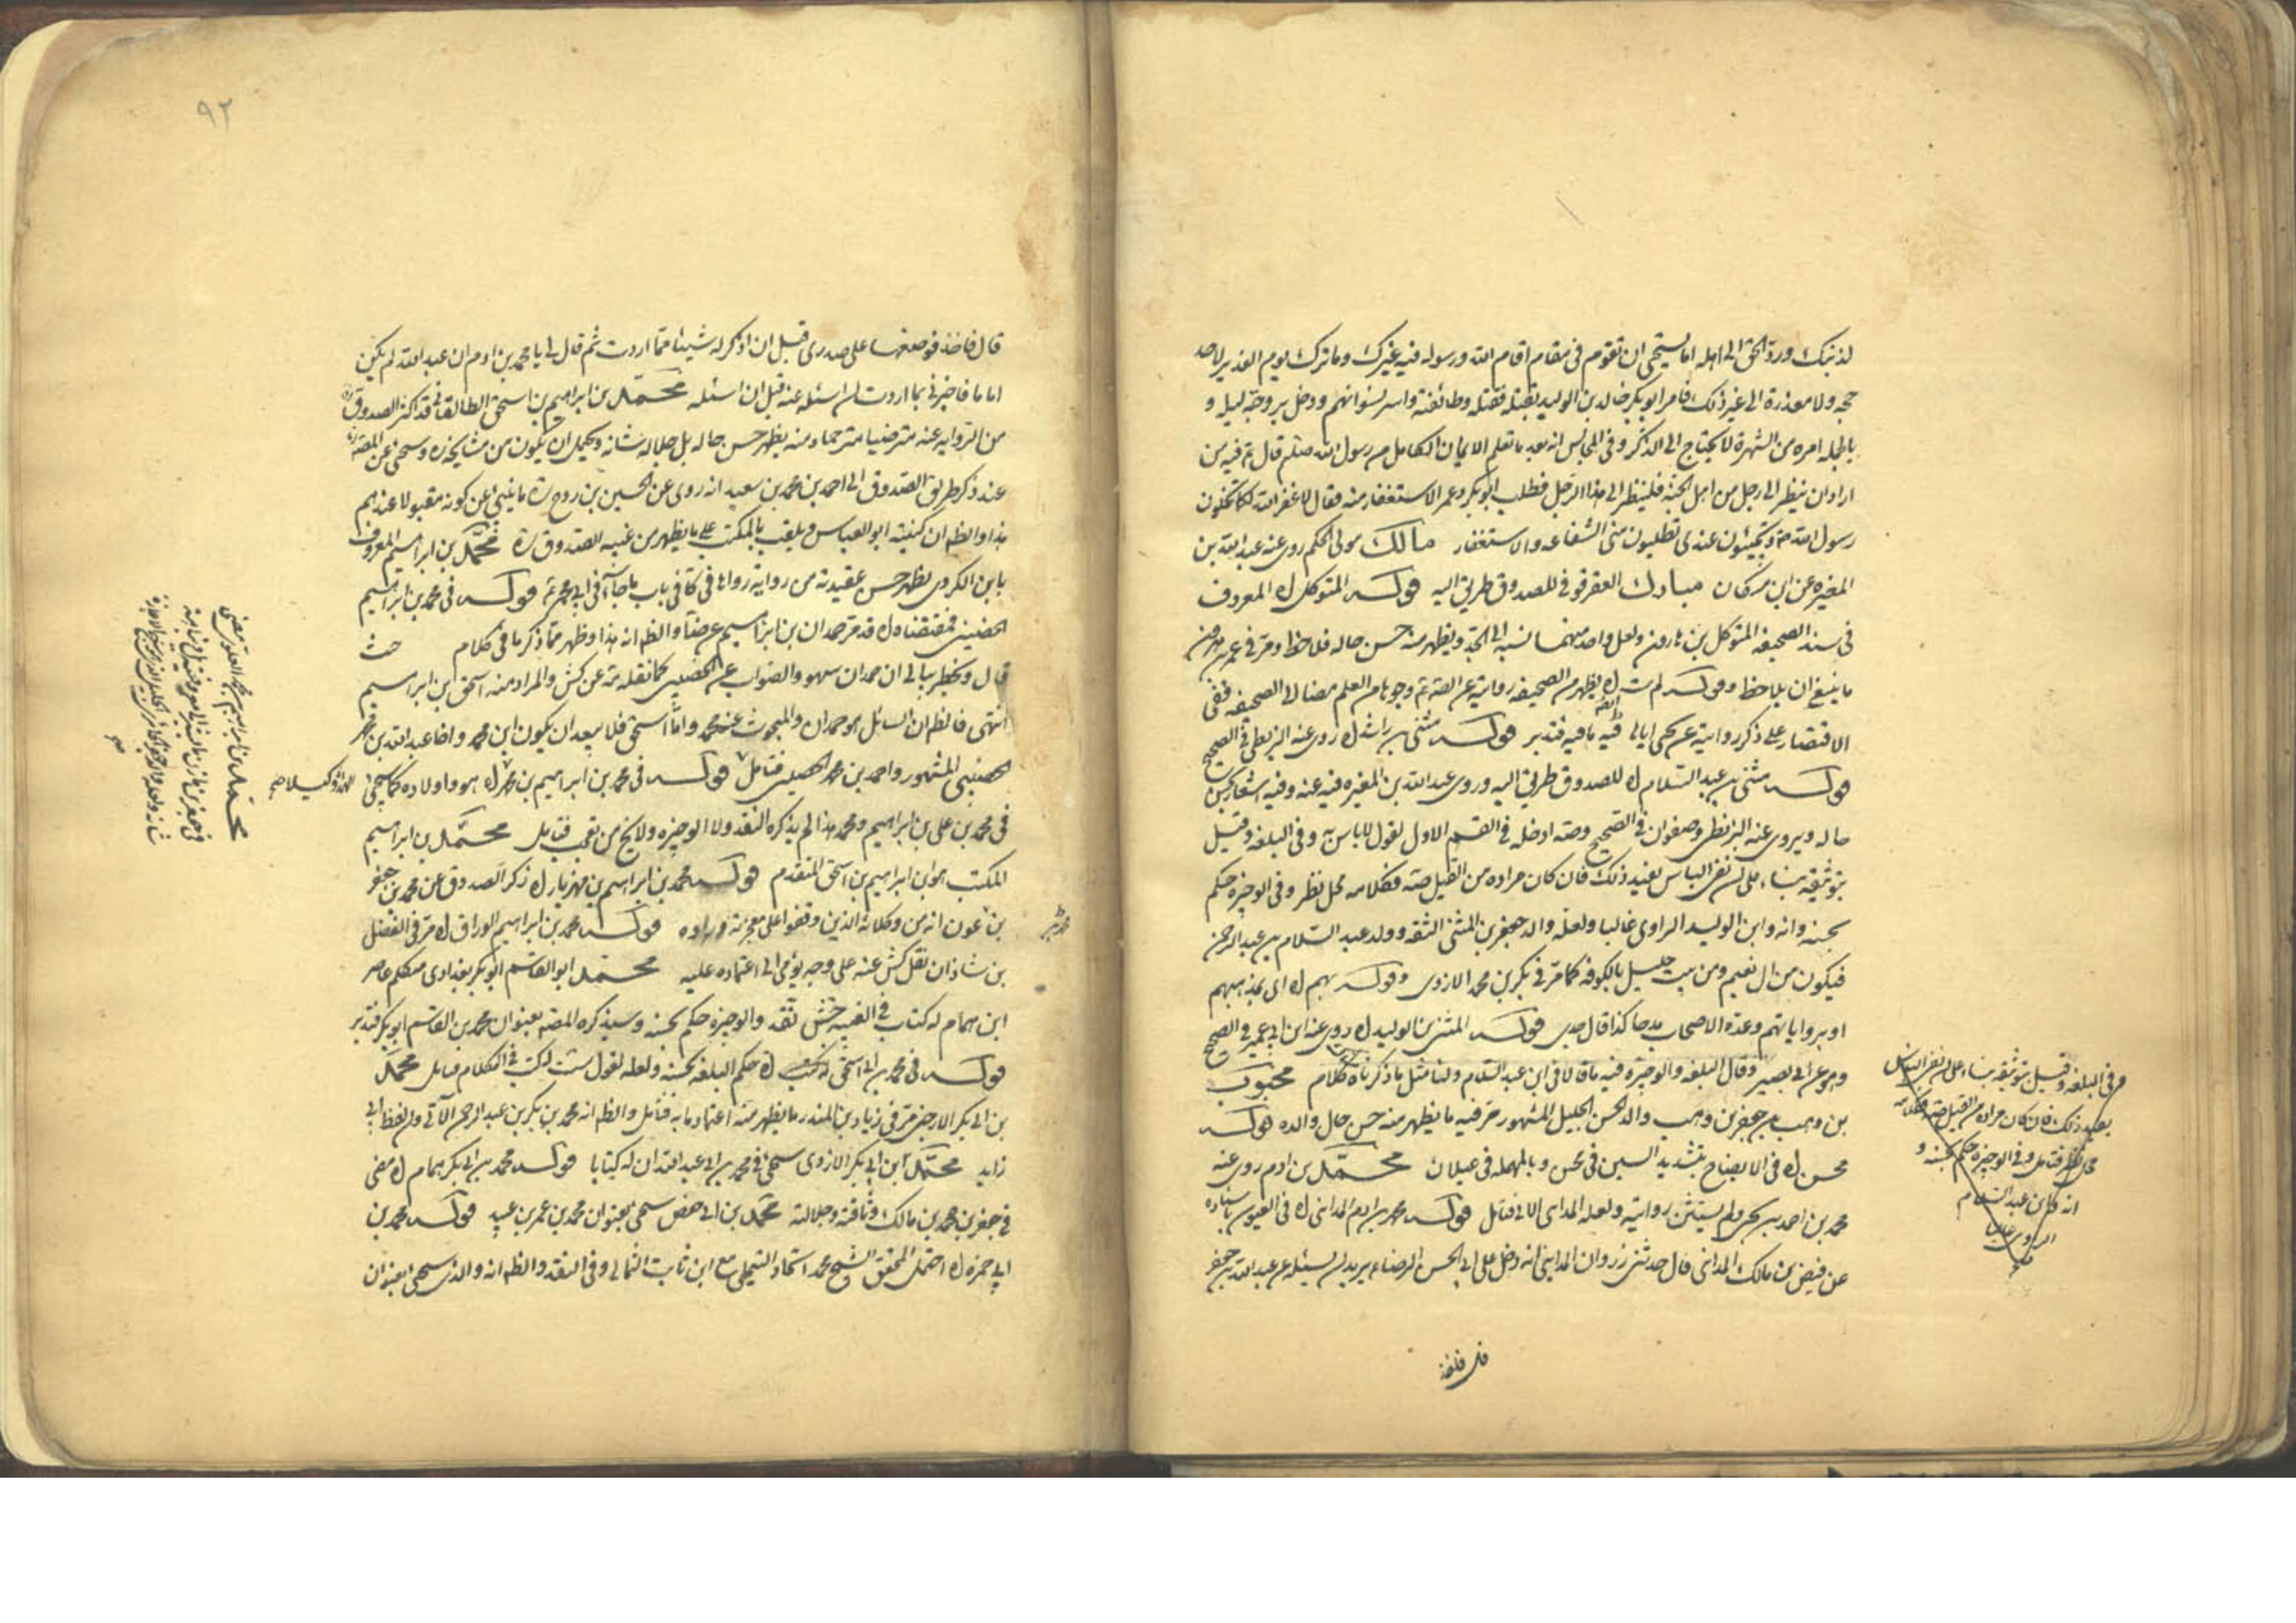 لذنبك ورد الحق الى اهله اما تستحيي ان تقوم في مقام اقام الله ورسوله فيه غيرك وما ترك يوم الغدير لاحد
حجه ولا معذرة الى غير ذلك فامر ابو بكر خالد بن الوليد بقتله فقتله وطائفته واسر نسوانهم ودخل بزوجته ليله و
بالجمله امره من الشهرة لا يحتاج الى الذكر وفي المجالس انه بعد ما تعلم الايمان الكامل من رسول الله صلم قال ع فيه من
اراد ان ينظر الى رجل من اهل الجنة فلينظر الى هذا الرجل فطلب ابو بكر وعمر الاستغفار منه فقال لا غفر الله لكما تتركون
رسول الله ص وتجيئون عندي تطلبون مني الشفاعه والاستغفار مالك مولى الحكم روى عنه عبد الله بن
المغيره عن ابن مسكان مبارك العقرقوفي للصدوق طريق اليه قوله المتوكل اه المعروف
في سند الصحيفه المتوكل بن هارون ولعل واحد منهما نسبه الى الجد ويظهر منه حسن حاله فلاحظ ومر في عمر بن هرون
ما ينبغي ان يلاحظ وقوله لم ت اه يظهر من الصحيفه روايته عن الصه ع وجوها من العلم مضافا الى الصحيفه ففي
الاقتصار على ذكر روايته عن يحيى ايضا فيه ما فيه فتدبر قوله مثنى بن راشد اه روى عنه البزنطي في الصحيح
قوله مثنى بن عبد السلام اه للصدوق طريق اليه وروى عبد الله بن المغيره فيه عنه وفيه اشعار بحسن
حاله ويروى عنه البزنطي وصفوان في الصحيح وصه ادخله في القسم الاول لقول لا باس به وفي البلغه وقيل
بتوثيقه بناء على ان نفي الباس يفيد ذلك فان كان مراده من القيل صه فكلامه محل نظر وفي الوجيزه حكم
بحسنه وانه وابن الوليد الراوي غالبا ولعله والد جعفر بن المثنى الثقه وولد عبد السلام بن عبد الرحمن
فيكون من آل نعيم ومن بيت جليل بالكوفه كما مر في بكر بن محمد الازدي وقوله بهم اه اي بمذهبهم
او برواياتهم وعده الاصحاب مدحا كذا قال جدي قوله المثنى بن الوليد اه روى عنه ابن ابي عمير في الصحيح
وهو عن ابي بصير وقال البلغه والوجيزه فيه ما قالا في ابن عبد السلام ولنا مثل ما ذكرناه كلام محبوب
بن وهب عن جعفر بن وهب والد الحسن الجليل المشهور مر فيه ما يظهر منه حسن حال والده قوله
محسن اه في الايضاح بتشديد السين في محسن وبالمهمله في عيلان محمد بن ادم روى عنه
محمد بن احمد بن يحيى ولم يستثن روايته ولعله المدايني الاتي فتامل قوله محمد بن ادم المدايني اه في العيون باسناده
عن فيض بن مالك المدايني قال حدثني زروان المدايني انه دخل على ابي الحسن الرضا ع يريد ان يسئله عن عبد الله بن جعفر
مر في البلغه وقيل بتوثيقه بناء على ان نفي الباس
يفيد ذلك فان كان مراده من القيل صه فكلامه
محل نظر فتامل وفي الوجيزه حكم بحسنه و
انه كابن عبد السلام
الراوي غالبا
٩٢
قال فاخذ فوضعها على صدري قبل ان اذكر له شيئا مما اردت ثم قال لي يا محمد بن ادم ان عبد الله لم يكن
اماما فاخبرني بما اردت ان اسئله عنه قبل ان اسئله محمد بن ابراهيم بن اسحق الطالقاني قد اكثر الصدوق ره
من الروايه عنه مترضيا مترحما ومنه يظهر حسن حاله بل جلاله شانه ويحتمل ان يكون من مشايخه ره وسيجئ عن المصه
عند ذكر طريق الصدوق الى احمد بن محمد بن سعيد انه روى عن الحسين بن روح ره ما ينبئ عن كونه مقبولا عندهم
هذا والظ ان كنيته ابو العباس ويلقب بالمكتب على ما يظهر من غيبه الصدوق ره محمد بن ابراهيم المعروف
بابن الكردي يظهر حسن عقيدته من رواية رواها في كا في باب ما جاء في ابي محمد ع قوله في محمد بن ابراهيم
الحضيني فمقتضاه اه قد مر حمدان بن ابراهيم عن ضا والظ انه هذا وظهر مما ذكر ما في كلام حث
قال ويخطر ببالي ان حمدان سهو والصواب عن الحضيني كما نقله مه عن كش والمراد منه اسحق ابن ابراهيم
انتهى فالظ ان السائل هو حمدان والمبحوث عنه محمد واما اسحق فلا يبعد ان يكون ابن محمد واخا عبد الله بن محمد
الحضيني المشهور واحمد بن محمد الحضيني فتامل قوله في محمد بن ابراهيم بن محمد اه هو واولاده كما سيجئ
في محمد بن علي بن ابراهيم ومحمد هذا لم يذكره النقد ولا الوجيزه ولا يخ من تعجب فتامل محمد بن ابراهيم
المكتب هو ابن ابراهيم بن اسحق المتقدم قوله محمد بن ابراهيم بن مهزيار اه ذكر الصدوق عن محمد بن جعفر
بن عون انه من وكلائه الذين وقفوا على معجزته وراوه قوله محمد بن ابراهيم الوراق اه مر في الفضل
بن شاذان نقل كش عنه على وجه يؤمي الى اعتماده عليه محمد ابو القاسم ابو بكر بغدادي متكلم عاصر
ابن همام له كتاب في الغيبه جش نقد والوجيزه حكم بحسنه وسيذكره المصه بعنوان محمد بن القاسم ابو بكر فتدبر
قوله في محمد بن ابي اسحق له كتب اه حكم البلغه بحسنه ولعله لقول ست له كتب في الكلام فتامل محمد
بن ابي بكر الارجني مر في زياد بن المنذر ما يظهر منه اعتماد ما به فتامل والظ انه محمد بن بكر بن عبد الرحمن الآتي وان لفظ ابي
زايد محمد ابن ابي بكر الازدي سيجئ في محمد بن ابي عبد الله ان له كتابا قوله محمد بن ابي بكر همام اه مضى
في جعفر بن محمد بن مالك وثاقته وجلالته محمد بن ابي حفص سيجئ بعنوان محمد بن عمر بن عبيد قوله محمد بن
ابي حمزه اه احتمل المحقق الشيخ محمد اتحاد التيملي مع ابن ثابت الثمالي وفي النقد والظ انه والذي سيجئ بعنوان